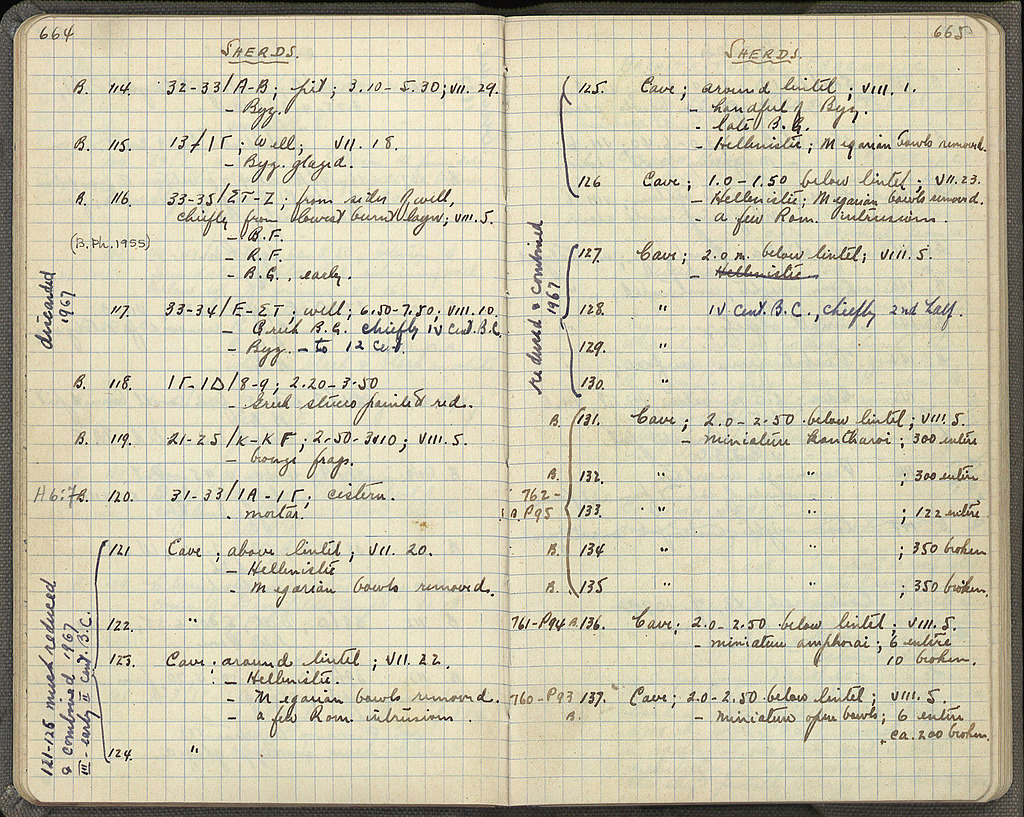 664
SHERDS.
B. 114. 32-33/A-B; pit; 3.10-5.30; VII. 29.
- Byz.
B. 115. 13/ΙΓ; well; VII. 18.
- Byz. glazed.
B. 116. 33-35/ΣΤ-Ζ; from sides of well,
chiefly from lowest burnt layer; VIII. 5.
- B.F.
(B. Ph. 1955)
- R.F.
- B.G., early.
discarded
1967
117. 33-34/Ε-ΣΤ; well; 6.50-7.50; VIII. 10.
- Greek B.G. chiefly IV cent. B.C.
- Byz. - to 12 cent.
B. 118. ΙΓ-ΙΔ/8-9; 2.20-3.50
- Greek stucco painted red.
B. 119. 21-25/Κ-ΚΓ; 2.50-3.10; VIII. 5.
- bowge frags.
H 6:7 B. 120. 31-33/ΙΑ-ΙΓ; cistern.
- mortar.
121-126 much reduced
& combined 1967
III - early II cent. B.C.
121 Cave; above lintel; VII. 20.
- Hellenistic
- Megarian bowls removed.
122. "
123. Cave; around lintel; VII. 22.
- Hellenistic.
- Megarian bowls removed.
- a few Rom. intrusions.
124. "
665
SHERDS.
125. Cave; around lintel; VIII. 1.
- handful of Byz.
- late B.G.
- Hellenistic; Megarian bowls removed.
126 Cave; 1.0-1.50 below lintel; VII. 23.
- Hellenistic; Megarian bowls removed.
- a few Rom. intrusions.
reduced & combined
1967
127. Cave; 2.0 m. below lintel; VIII. 5.
- Hellenistic
128. " IV cent. B.C., chiefly 2nd half.
129. "
130. "
B. 131. Cave; 2.0-2.50 below lintel; VIII. 5.
- miniature kantharoi; 300 entire
B. 132. " " ; 300 entire
762-
B. P95 133. " " ; 122 entire
B. 134 " " ; 350 broken
B. 135 " " ; 350 broken.
761-P94 B. 136. Cave; 2.0-2.50 below lintel; VIII. 5.
- miniature amphorai; 6 entire
10 broken.
760-P93 137. Cave; 2.0-2.50 below lintel; VIII. 5.
B. - miniature open bowls; 6 entire
ca. 200 broken.